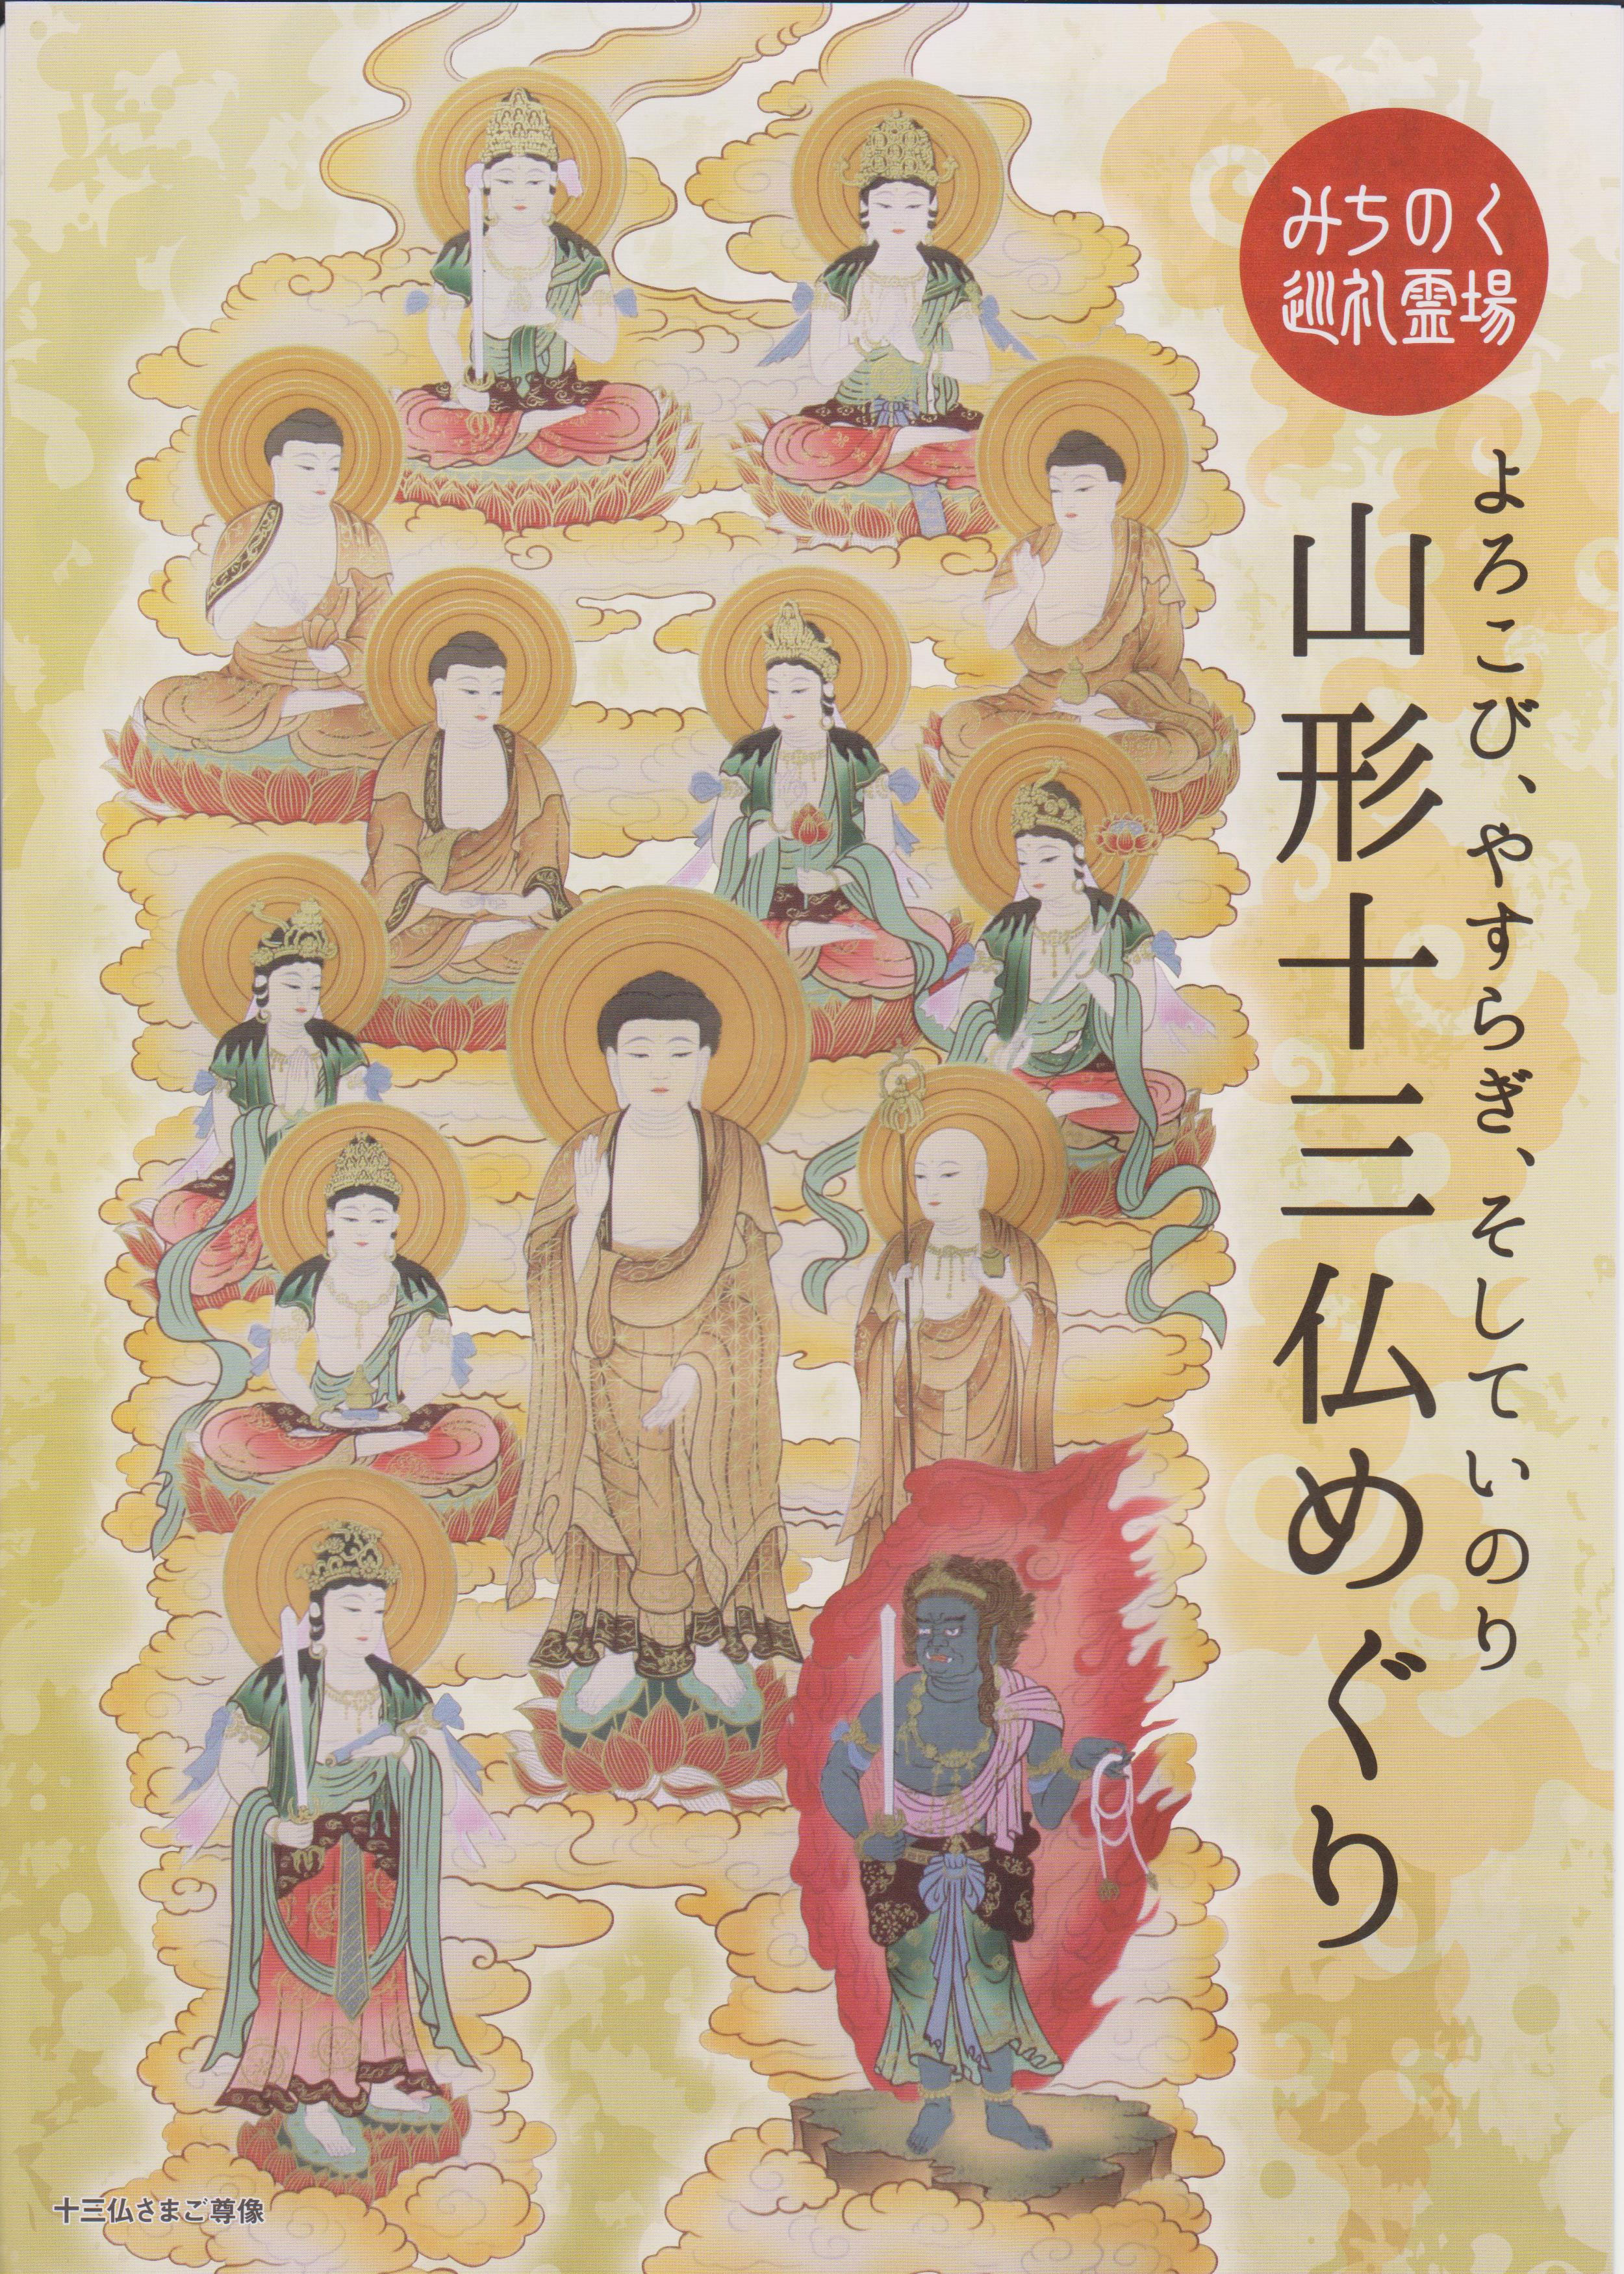 みちのく
巡礼霊場
よろこび、やすらぎ、そしていのり
山形十三仏めぐり
十三仏さまご尊像